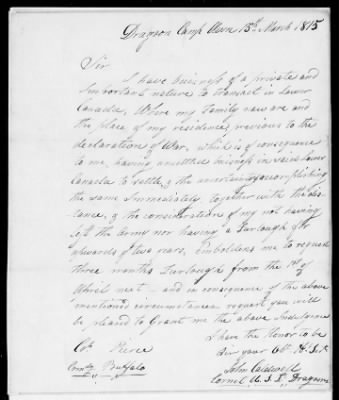 Dragoon Camp Avon 15th March 1815
Sir
I have business of a private and
important nature to transact in Lower
Canada, Where my Family now are and
the place of my residence, previous to the
declaration of War, which is of consequence
to me, having unsettled business in said Lower
Canada to settle, & the uncertainty accomplishing
the same immediately, together with the dis-
tance, & the consideration of my not having
left the Army nor having a Furlough for
upwards of two years, emboldens me to request
three months Furlough from the 1st of
April next — and in consequence of the above
mentioned circumstances request you will
be pleased to Grant me the above Indulgence
I have the Honor to be
Sir your Obt. H. Sert
Col. Pierce
John Caldwell
Comdg Buffalo
Cornet U.S.L. Dragoons